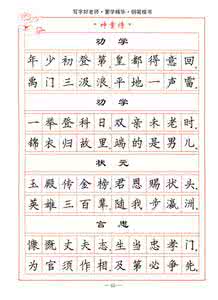 写字好老师·蒙学精华·钢笔楷书
神童诗
劝学
年少初登第皇都得意回
禹门三级浪平地一声雷
劝学
一举登科日双亲未老时
锦衣归故里端的是男儿
状元
玉殿传金榜君恩赐状头
英雄三百辈随我步瀛洲
言志
慷慨丈夫志生当忠孝门
为官须作相及第必争先